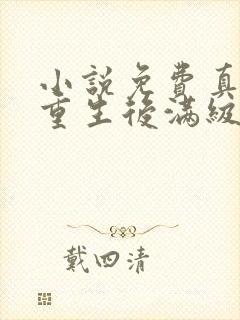 小說免費真
重生後滿級
戴四清